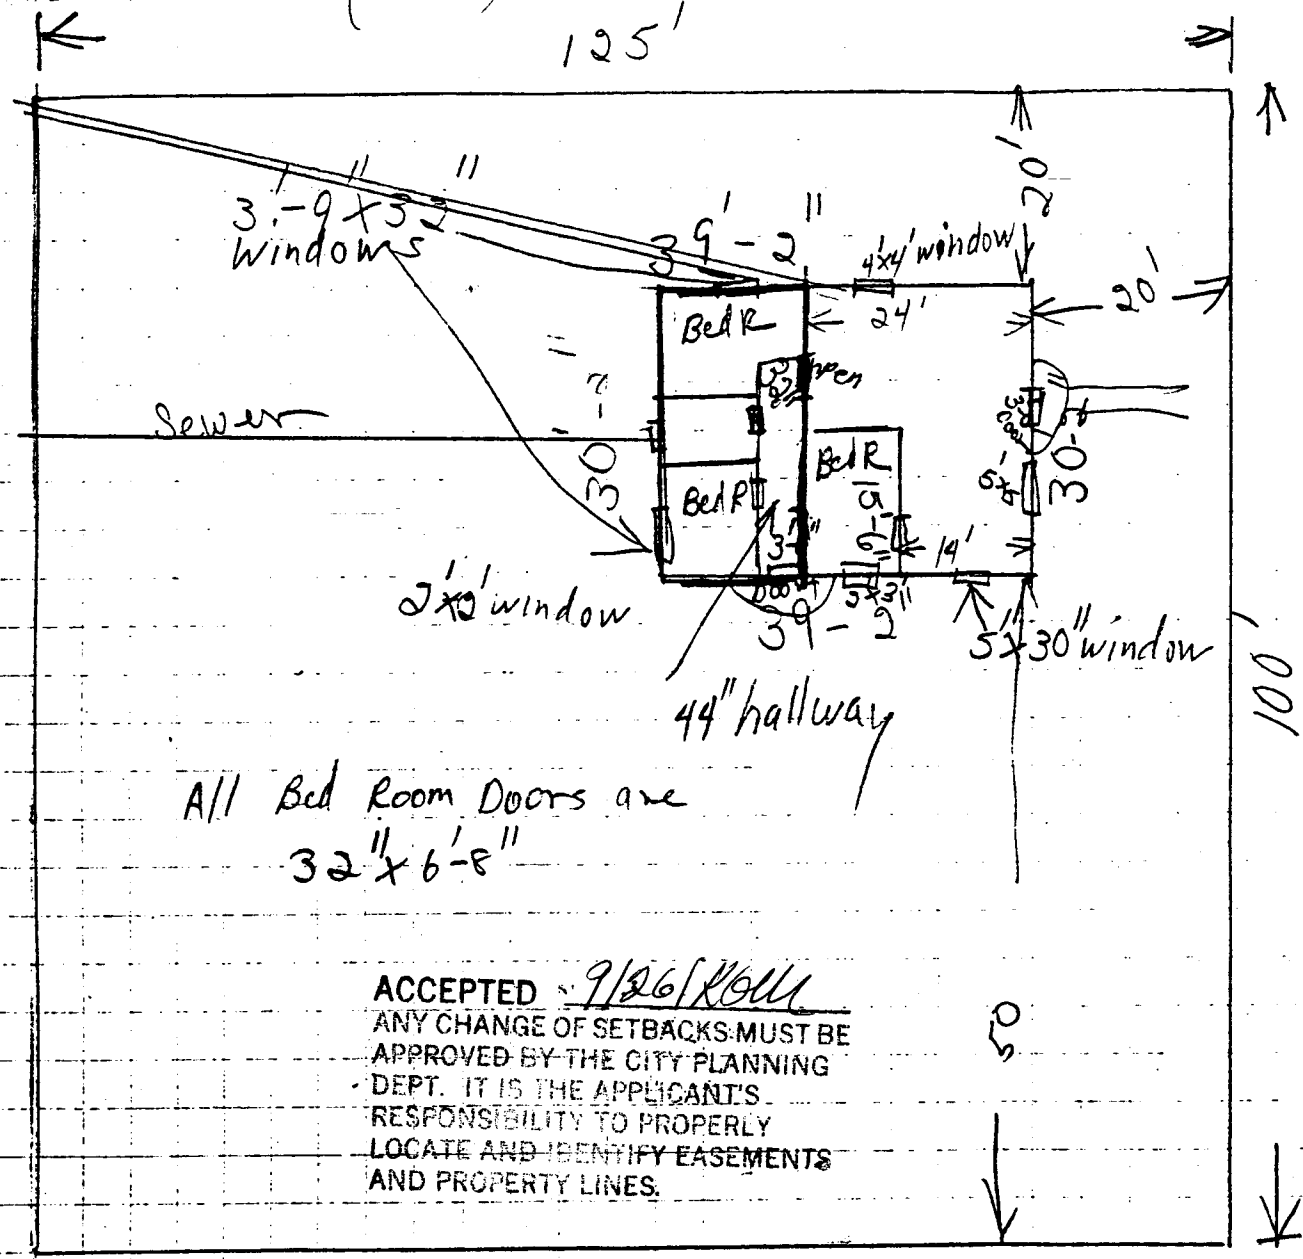 125'
3'-9"x32"
windows
39'-2"
4'x4' window
20'
20'
24'
Bed R
open
Sewer
30-2"
Bed R
Bed R
15'-6"
Door
5'x5'
30-2
14'
3'-1"
Door
2'x3'
2'x2' window
39-2"
5"x30" window
44" hallway
100'
All Bed Room Doors are
32"x6'-8"
50
ACCEPTED 9/26/
ANY CHANGE OF SETBACKS MUST BE
APPROVED BY THE CITY PLANNING
DEPT. IT IS THE APPLICANT'S
RESPONSIBILITY TO PROPERLY
LOCATE AND IDENTIFY EASEMENTS
AND PROPERTY LINES.